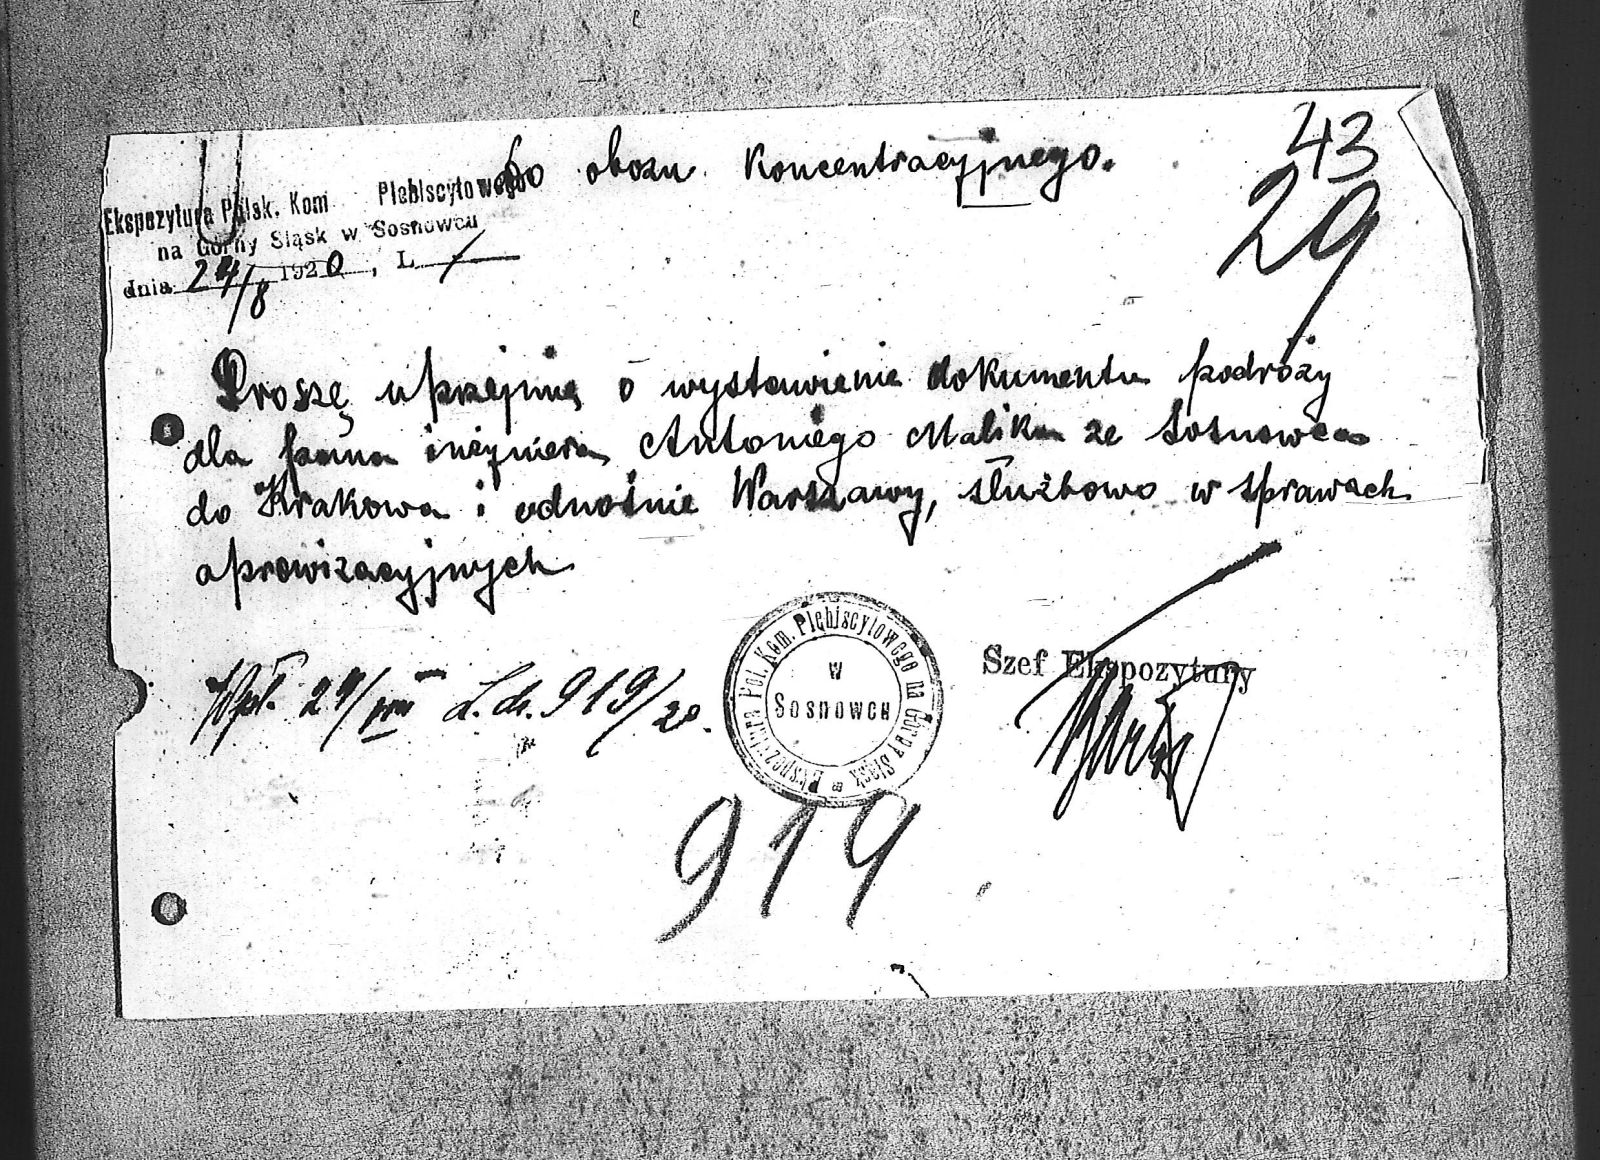 Do obozu Koncentracyjnego.
43
29
Ekspozytura Polsk. Kom Plebiscytowego
na Górny Śląsk w Sosnowcu
dnia 24/8 1920, L. /
Proszę uprzejmię o wystawienie dokumentu podróży
dla pana inżyniera Antoniego Malika ze Sosnowca
do Krakowa i odnośnie Warszawy, służbowo w sprawach
aprowizacyjnych
Szef Ekspozytury
Wpł. 24/VIII L. dz. 919/20.
Ekspozytura Pol. Kom. Plebiscytowego na Górny Śląsk
w
Sosnowcu
919